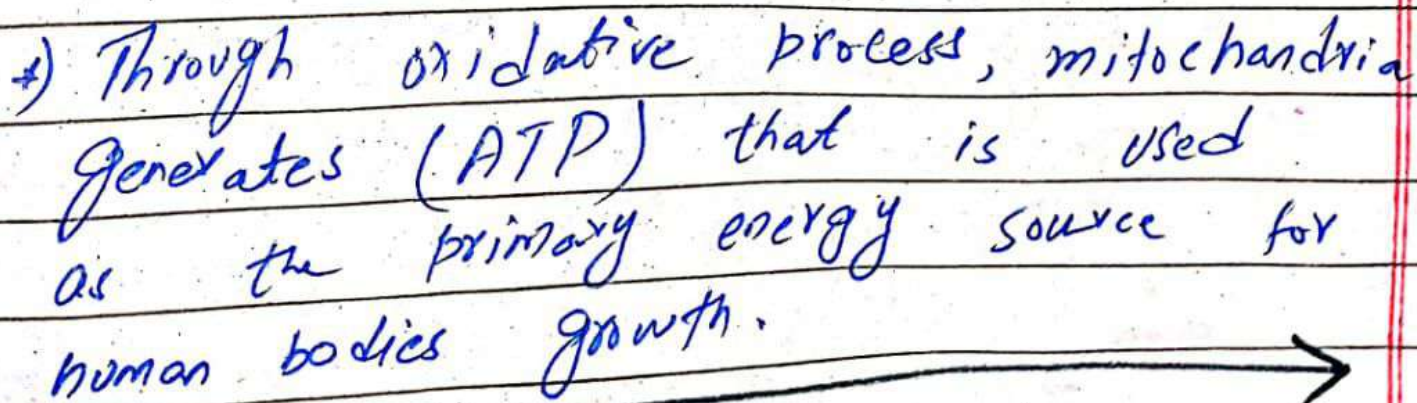 *) Through oxidative process, mitochandria
generates (ATP) that is used
as the primary energy source for
human bodies growth.